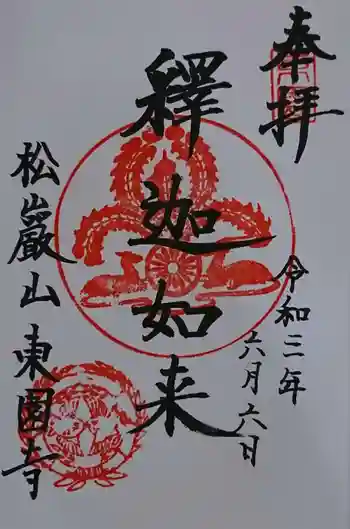 奉拝
令和三年
六月六日
釋迦如来
松巖山東圓寺